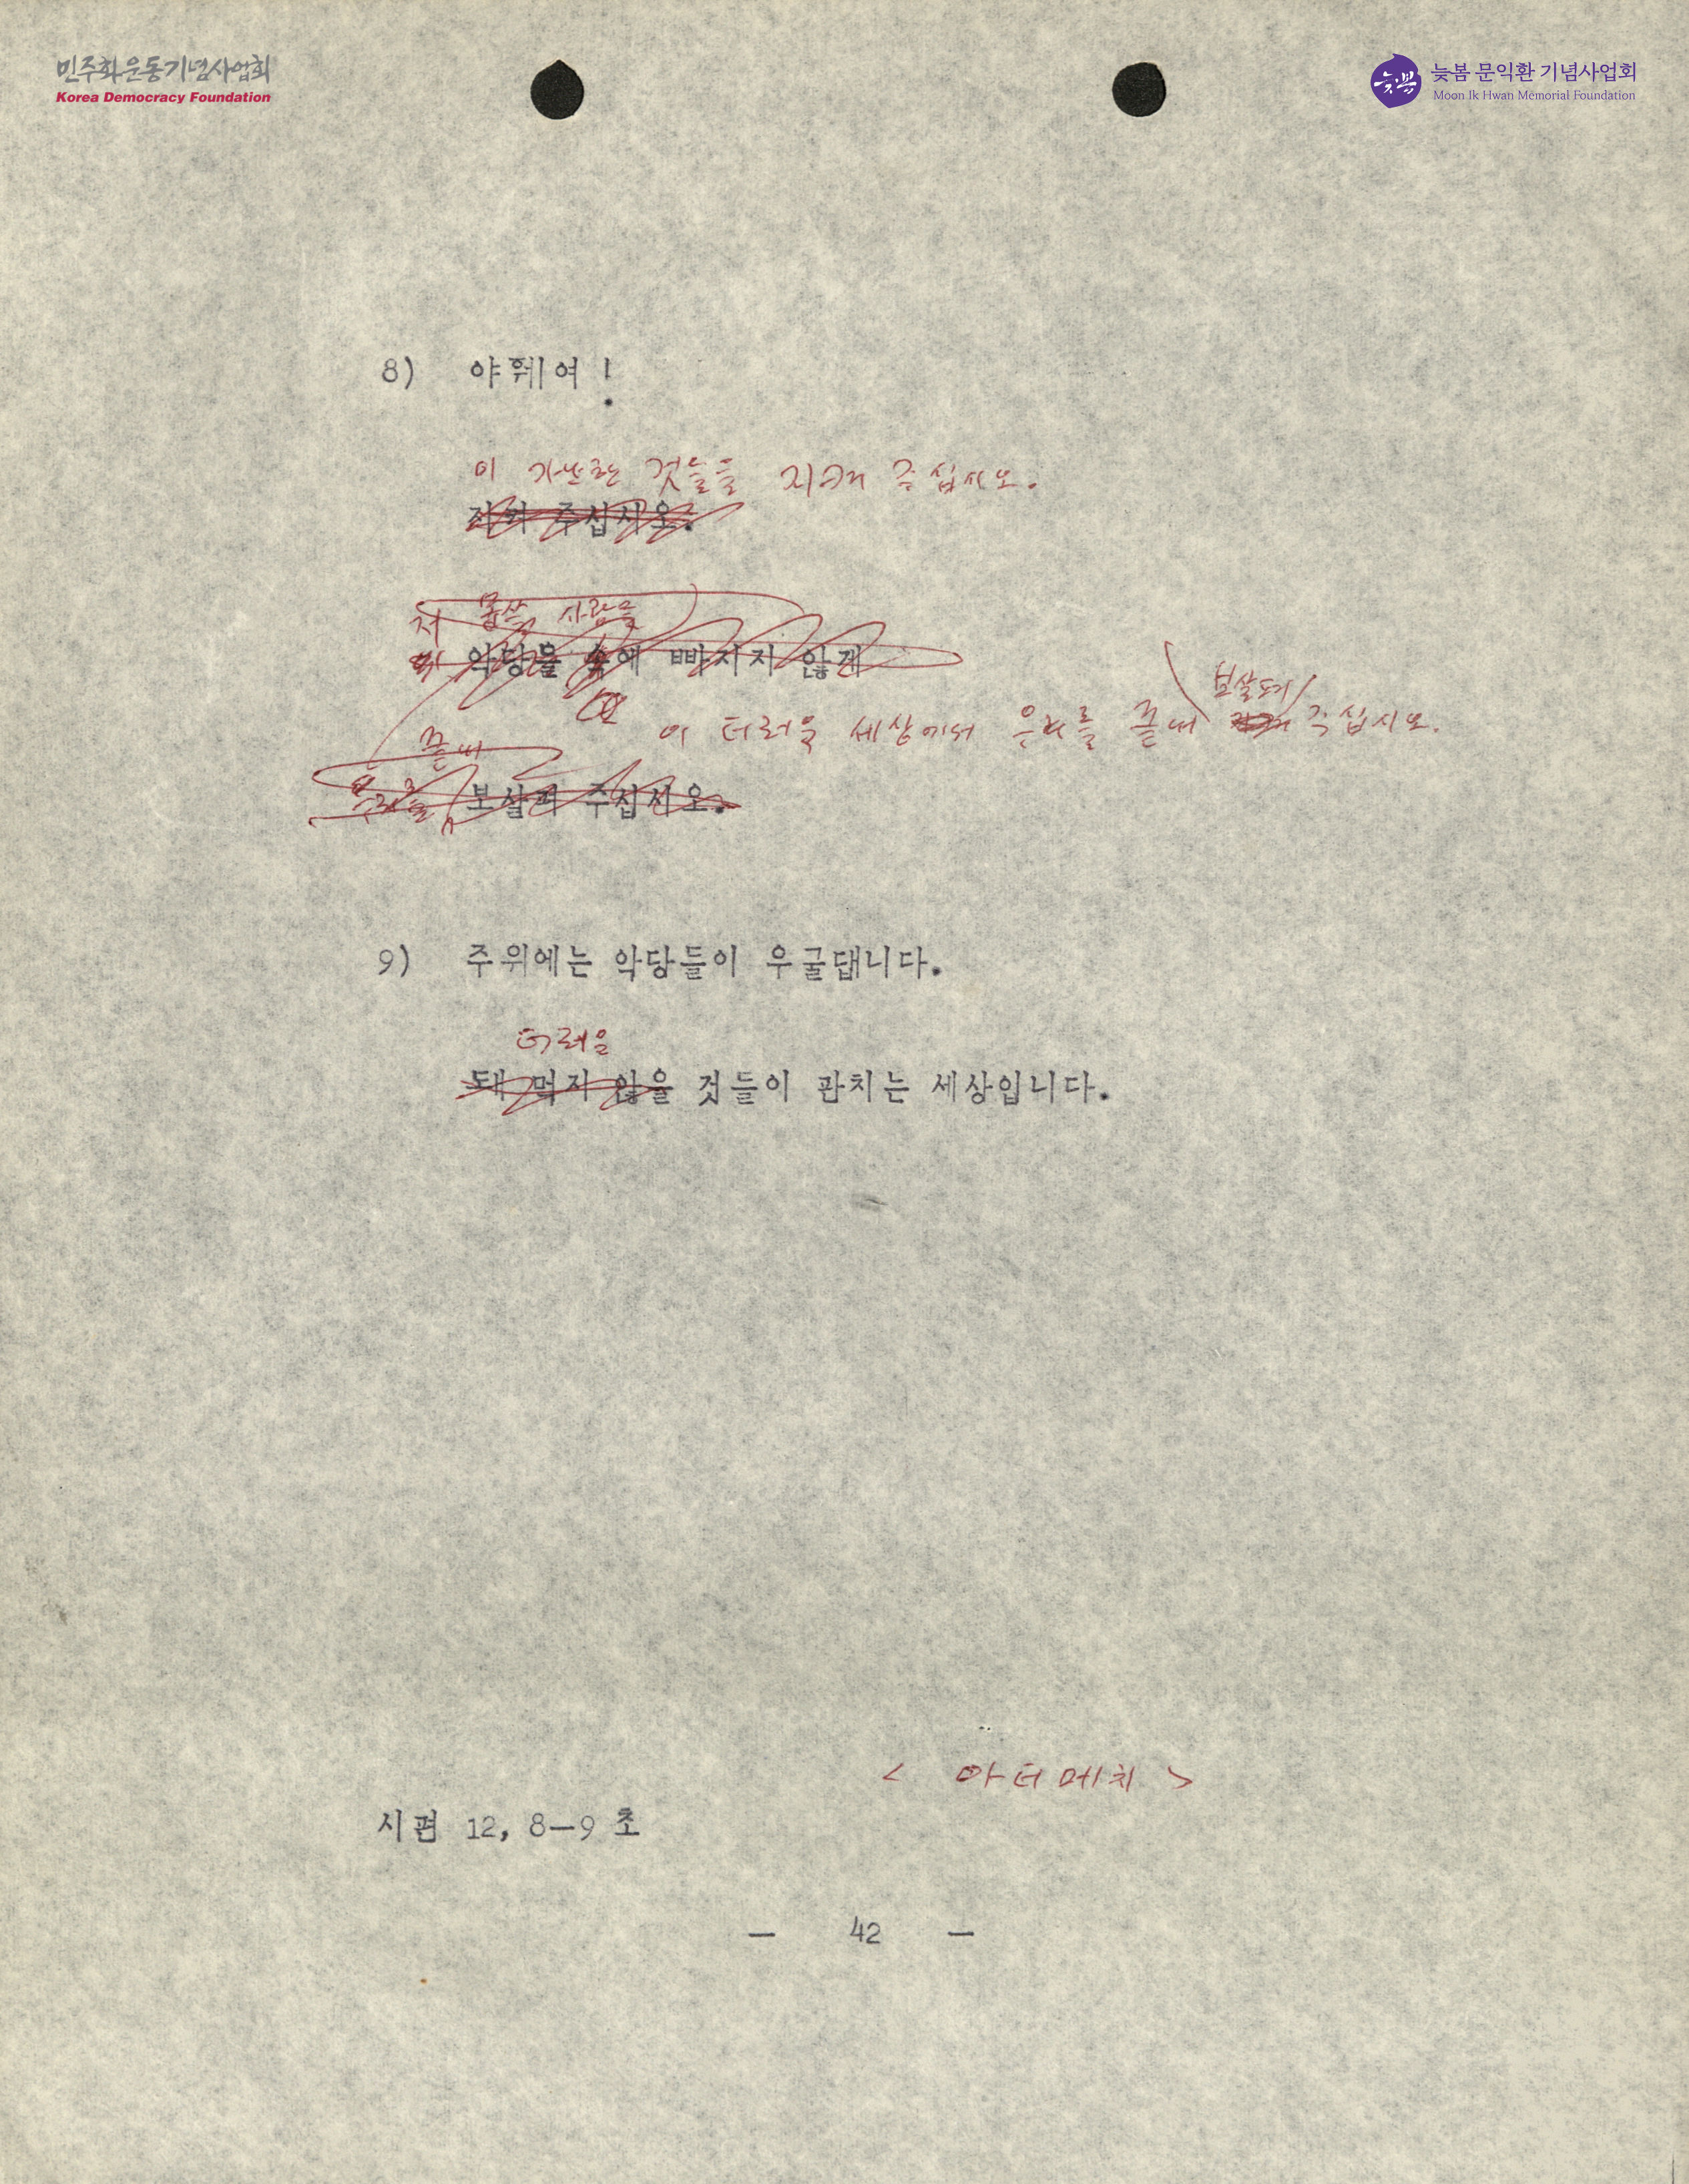 민주화운동기념사업회
Korea Democracy Foundation
늦봄 문익환 기념사업회
Moon Ik Hwan Memorial Foundation
8) 야훼여!
이 가난한 것들을 지켜 주십시오.
지켜 주십시오.
저 몹쓸 사람들
악당들 속에 빠지지 않게
보살펴
이 더러운 세상에서 우리를 끝내 주십시오.
끝내
우리를 보살펴 주십시오.
9) 주위에는 악당들이 우굴댑니다.
더러운
돼 먹지 않을 것들이 판치는 세상입니다.
< 아더메치 >
시편 12, 8—9 초
— 42 —